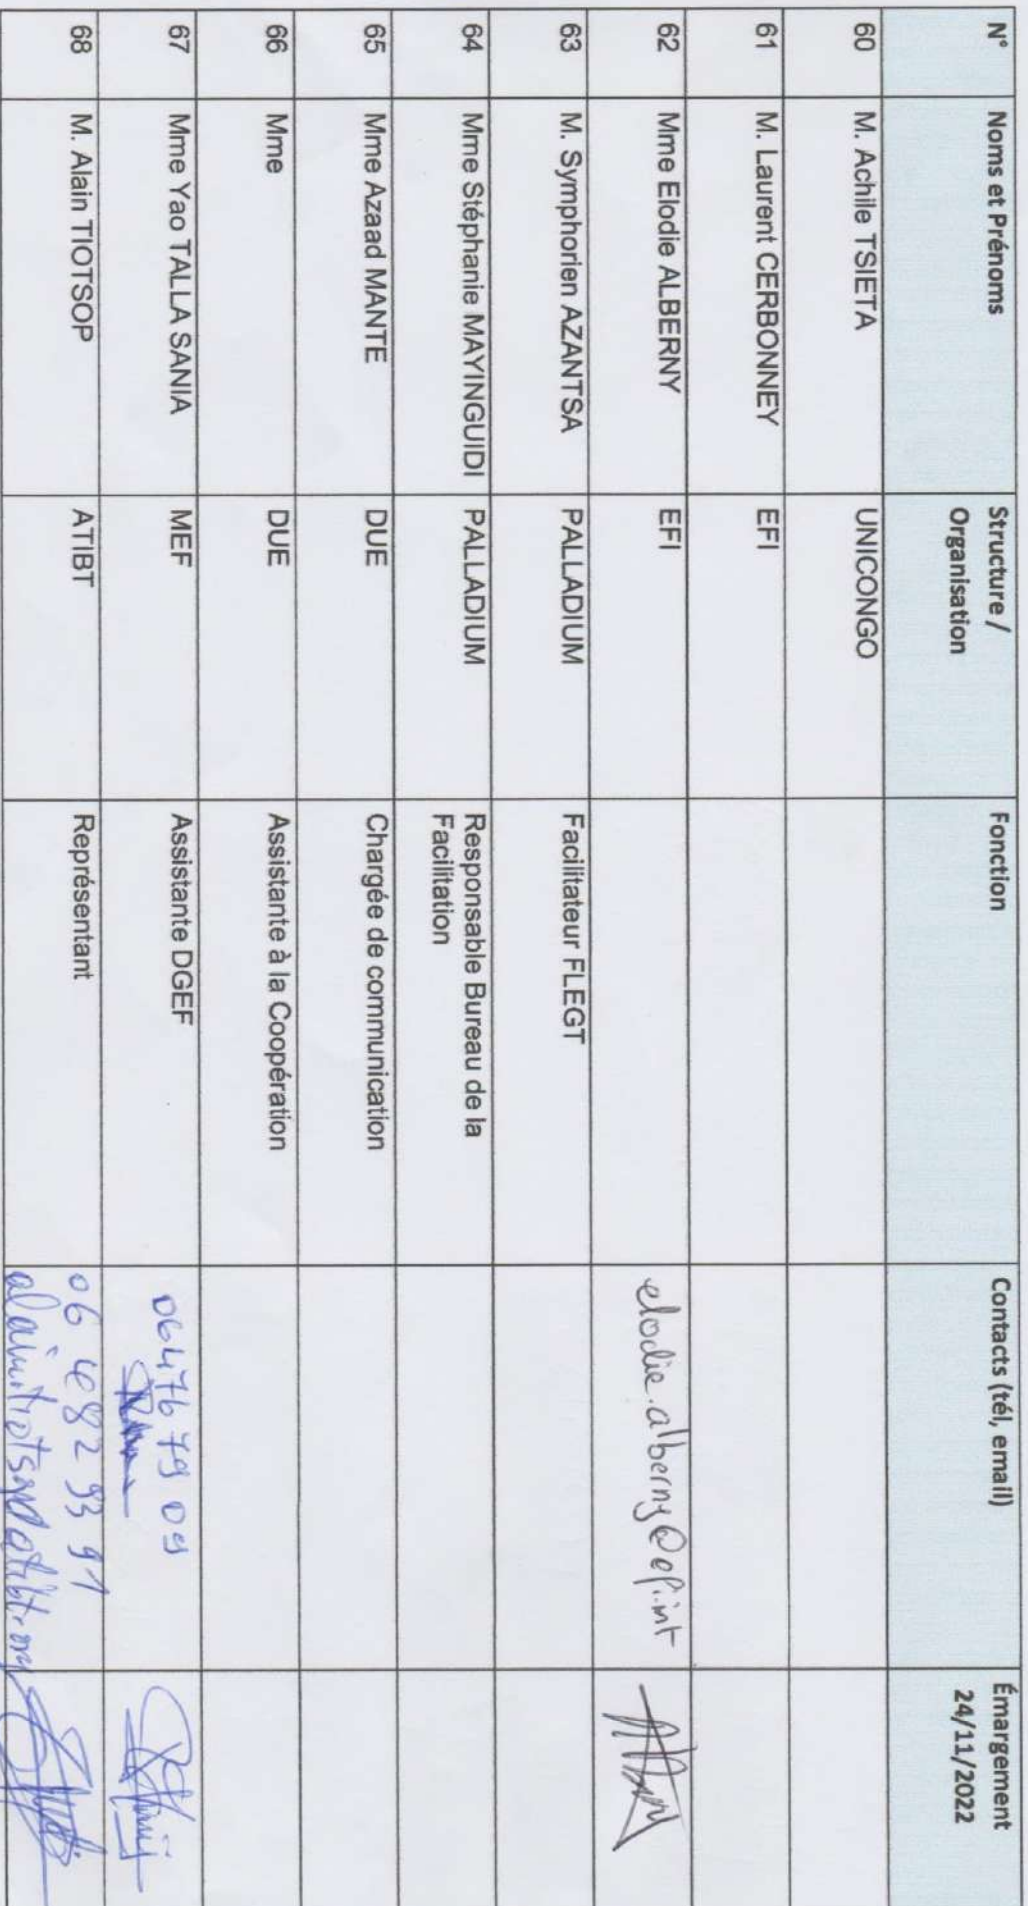 N° Noms et Prénoms Structure / Organisation Fonction Contacts (tél, email) Émargement 24/11/2022
60 M. Achile TSIETA UNICONGO
61 M. Laurent CERBONNEY EFI
62 Mme Elodie ALBERNY EFI elodie.alberny@efi.int
63 M. Symphorien AZANTSA PALLADIUM Facilitateur FLEGT
64 Mme Stéphanie MAYINGUIDI PALLADIUM Responsable Bureau de la
Facilitation
65 Mme Azaad MANTE DUE Chargée de communication
66 Mme DUE Assistante à la Coopération
67 Mme Yao TALLA SANIA MEF Assistante DGEF 06 476 79 09
68 M. Alain TIOTSOP ATIBT Représentant 06 482 93 91